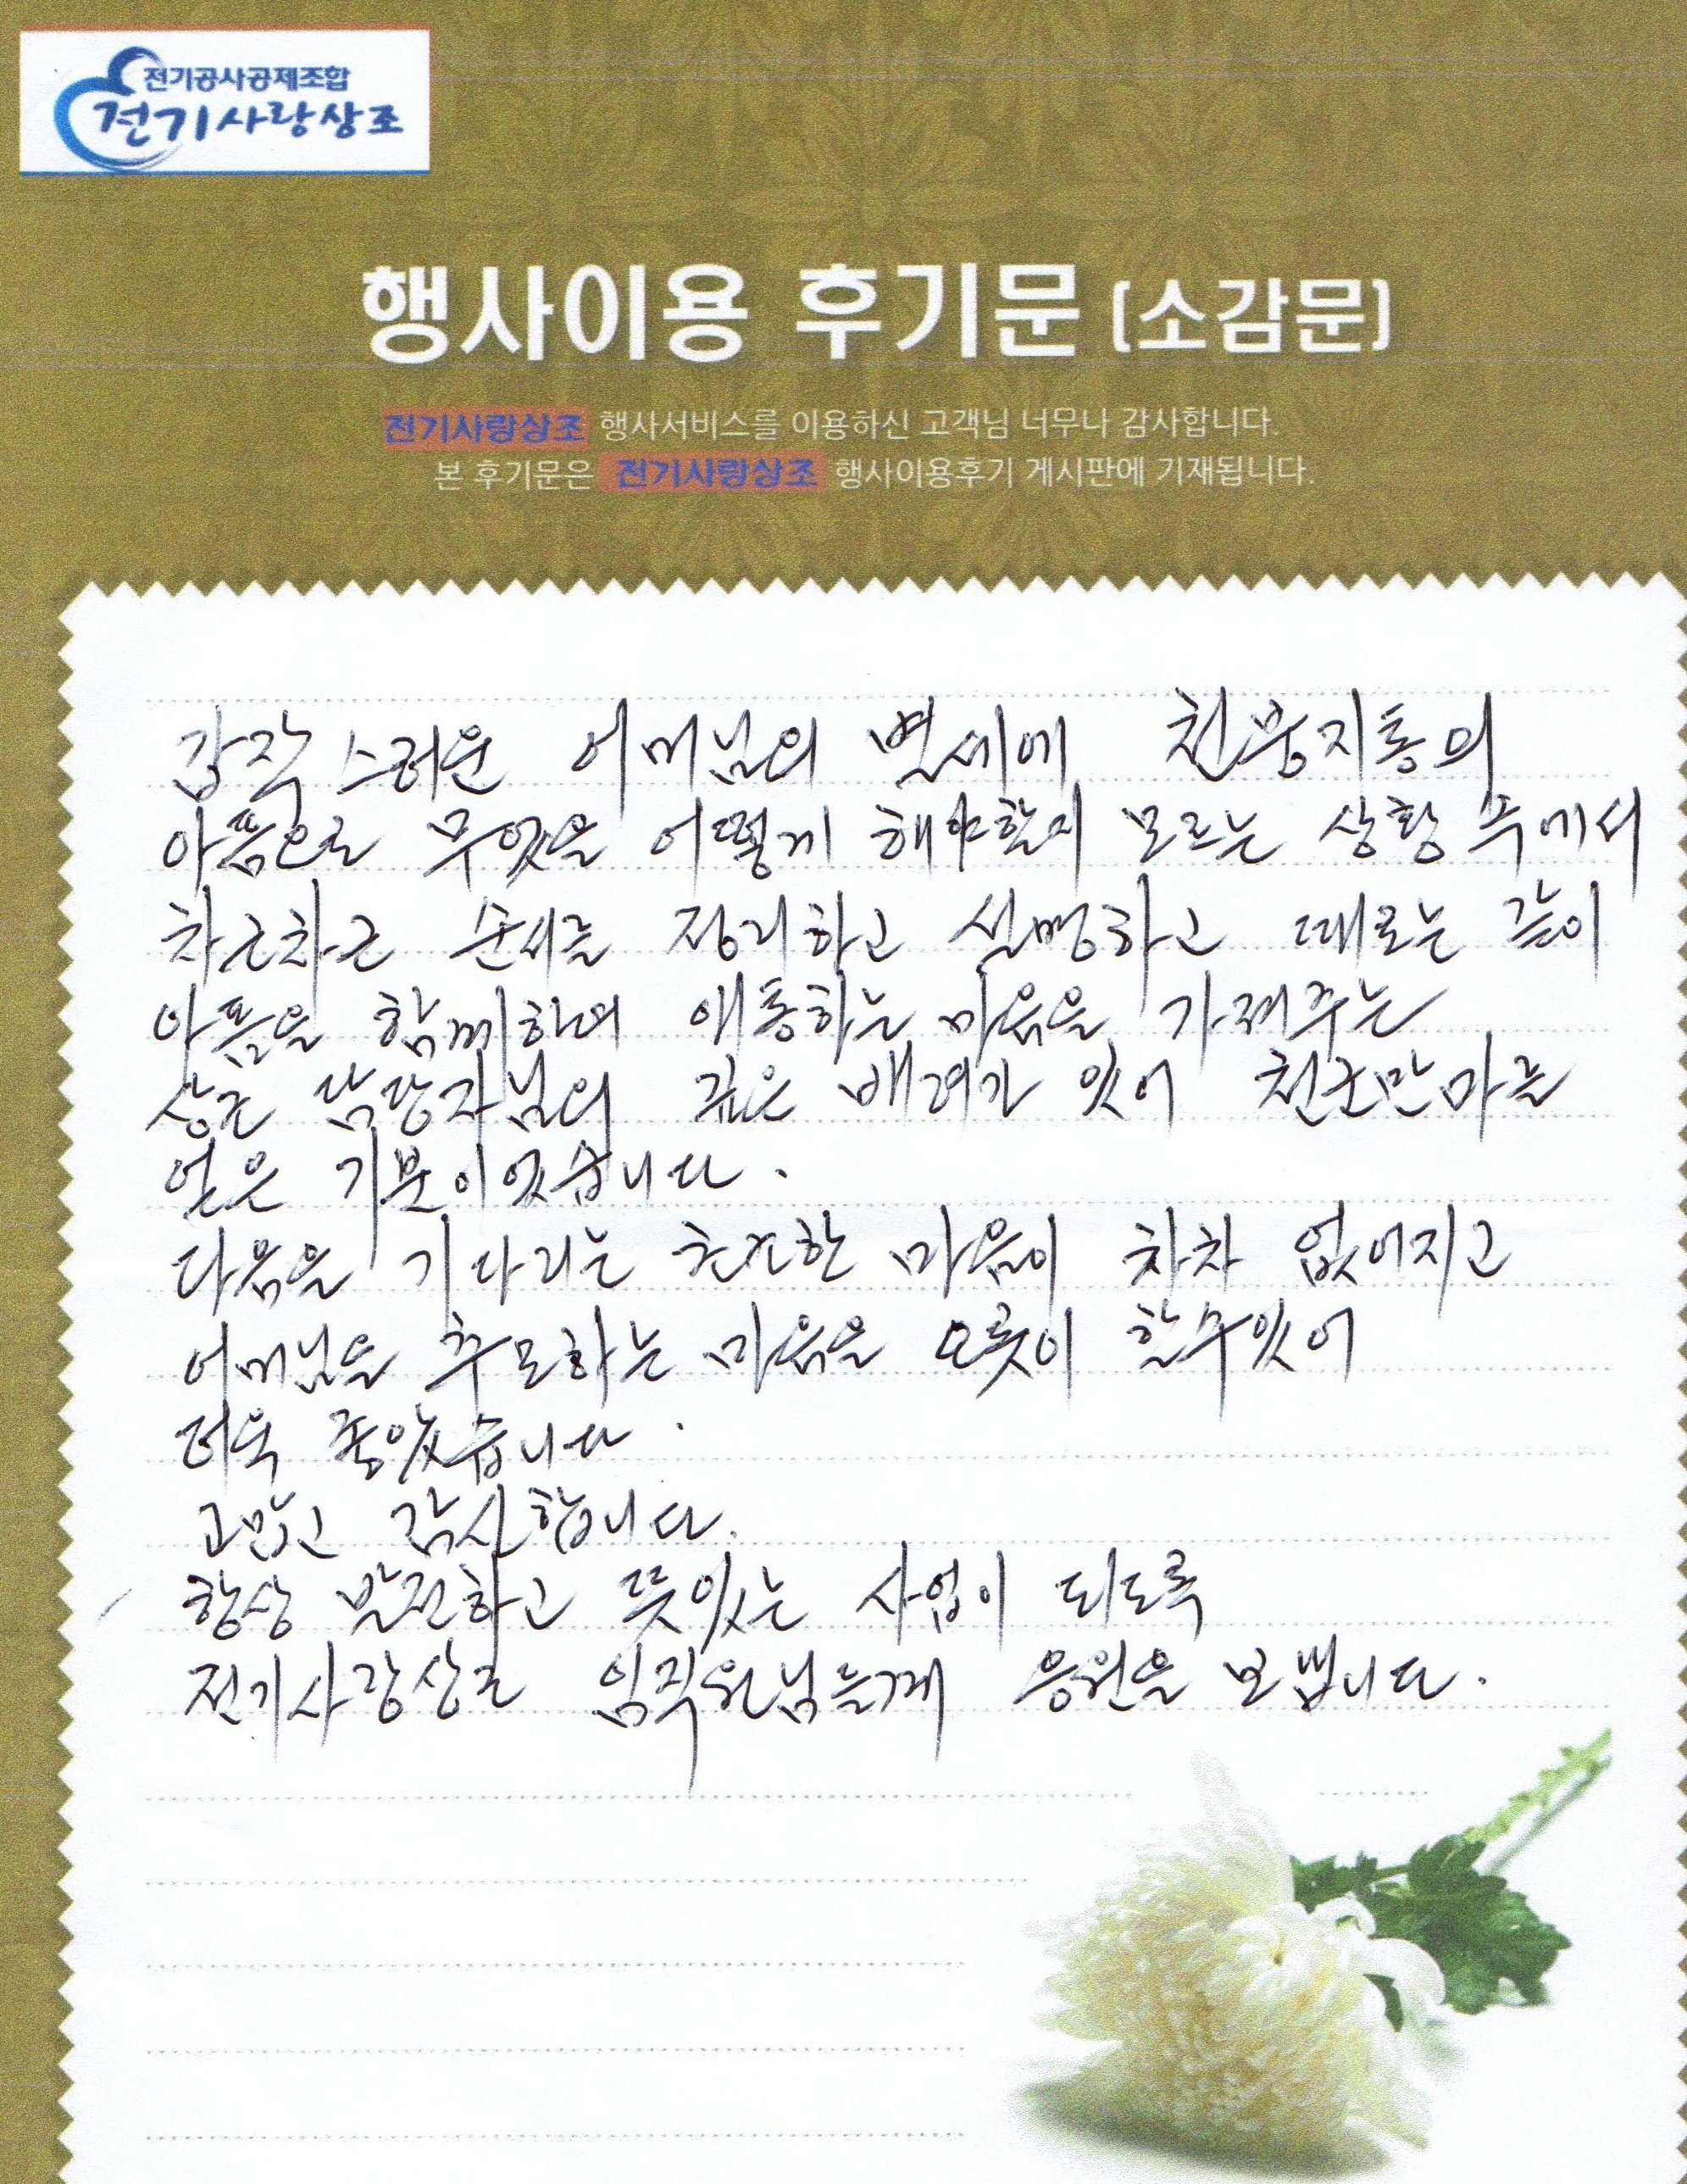 전기공사공제조합
전기사랑상조
행사이용 후기문 (소감문)
전기사랑상조 행사서비스를 이용하신 고객님 너무나 감사합니다.
본 후기문은 전기사랑상조 행사이용후기 게시판에 기재됩니다.
갑작스러운 어머님의 별세에 천붕지통의
아픔으로 무엇을 어떻게 해야할지 모르는 상황 속에서
차근차근 순서를 정리하고 설명하고 때로는 같이
아픔을 함께하며 애통하는 마음을 가져주는
상조 담당자님의 깊은 배려가 있어 천군만마를
얻은 기분이었습니다.
다음을 기다리는 초조한 마음이 차차 없어지고
어머님을 추모하는 마음을 오롯이 할수있어
더욱 좋았습니다.
고맙고 감사합니다.
항상 발전하고 뜻있는 사업이 되도록
전기사랑상조 임직원님들께 응원을 보냅니다.